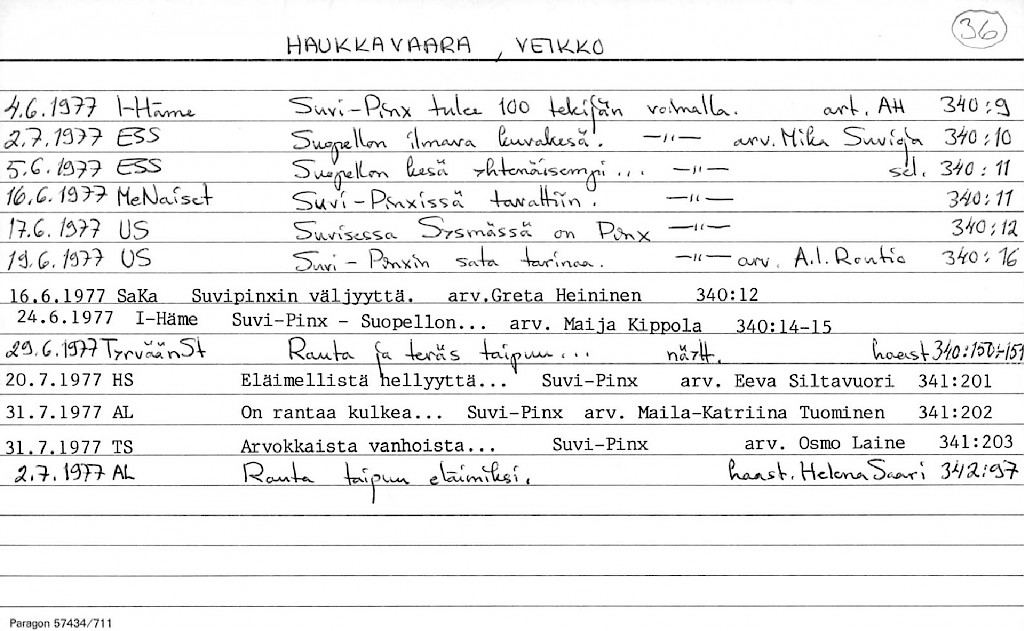 36
HAUKKAVAARA, VEIKKO
4.6.1977 I-Häme Suvi-Pinx tulee 100 tekijän voimalla. art. AH 340:9
2.7.1977 ESS Suopellon ilmava kuvakesä. —"— arv. Mika Suvioja 340:10
5.6.1977 ESS Suopellon kesä yhtenäisempi... —"— sel. 340:11
16.6.1977 MeNaiset Suvi-Pinxissä tavattiin. —"— 340:11
17.6.1977 US Suvisessa Sysmässä on Pinx —"— 340:12
19.6.1977 US Suvi-Pinxin sata tarinaa. —"— arv. A.I.Routio 340:16
16.6.1977 SaKa Suvipinxin väljyyttä. arv.Greta Heininen 340:12
24.6.1977 I-Häme Suvi-Pinx - Suopellon... arv. Maija Kippola 340:14-15
29.6.1977 TyrväänSt Rauta ja teräs taipuu... näytt. haast 340:150-151
20.7.1977 HS Eläimellistä hellyyttä... Suvi-Pinx arv. Eeva Siltavuori 341:201
31.7.1977 AL On rantaa kulkea... Suvi-Pinx arv. Maila-Katriina Tuominen 341:202
31.7.1977 TS Arvokkaista vanhoista... Suvi-Pinx arv. Osmo Laine 341:203
2.7.1977 AL Rauta taipuu eläimiksi. haast. Helena Saari 342:97
Paragon 57434/711